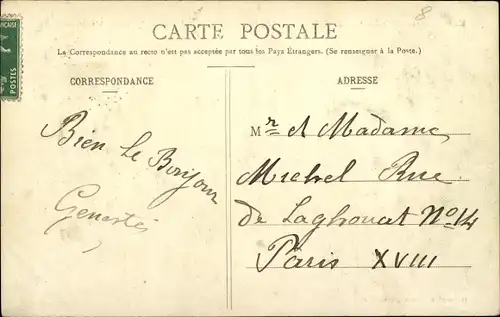 8
CARTE POSTALE
La Correspondance au recto n'est pas acceptée par tous les Pays Étrangers. (Se renseigner à la Poste.)
POSTES
CORRESPONDANCE
Bien le Bonjour
ADRESSE
Mr et Madame
Michel Rue
de Laghouat No 14
Paris XVIII